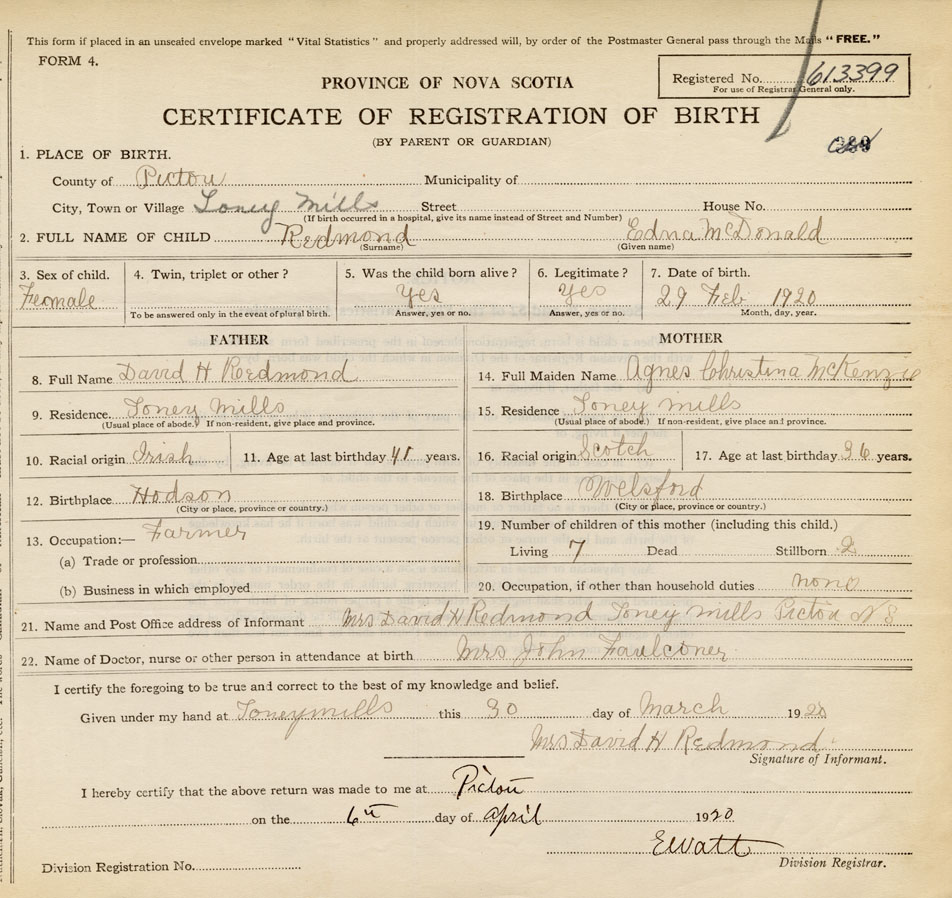 This form if placed in an unsealed envelope marked "Vital Statistics" and properly addressed will, by order of the Postmaster General pass through the Mails "FREE."
FORM 4.
PROVINCE OF NOVA SCOTIA
Registered No. 613399
For use of Registrar General only.
CERTIFICATE OF REGISTRATION OF BIRTH
(BY PARENT OR GUARDIAN)
1. PLACE OF BIRTH.
County of Pictou Municipality of
City, Town or Village Toney Mills Street House No.
(If birth occurred in a hospital, give its name instead of Street and Number)
2. FULL NAME OF CHILD Redmond Edna McDonald
(Surname) (Given name)
3. Sex of child. 4. Twin, triplet or other? 5. Was the child born alive? 6. Legitimate? 7. Date of birth.
Female yes yes 29 Feb 1920
To be answered only in the event of plural birth. Answer, yes or no. Answer, yes or no. Month, day, year.
FATHER MOTHER
8. Full Name David H Redmond 14. Full Maiden Name Agnes Christina McKenzie
9. Residence. Toney Mills 15. Residence Toney mills
(Usual place of abode.) If non-resident, give place and province. (Usual place of abode.) If non-resident, give place and province.
10. Racial origin Irish 11. Age at last birthday 41 years. 16. Racial origin Scotch 17. Age at last birthday 36 years.
12. Birthplace Hodson 18. Birthplace Welsford
(City or place, province or country.) (City or place, province or country.)
13. Occupation:— Farmer 19. Number of children of this mother (including this child.)
(a) Trade or profession Living 7 Dead Stillborn 2
(b) Business in which employed 20. Occupation, if other than household duties none
21. Name and Post Office address of Informant Mrs David H Redmond Toney mills Pictou N S
22. Name of Doctor, nurse or other person in attendance at birth Mrs John Faulconer
I certify the foregoing to be true and correct to the best of my knowledge and belief.
Given under my hand at Toneymills this 30 day of March 1920
Mrs David H Redmond
Signature of Informant.
I hereby certify that the above return was made to me at Pictou
on the 6th day of April 1920
E Watt
Division Registration No. Division Registrar.